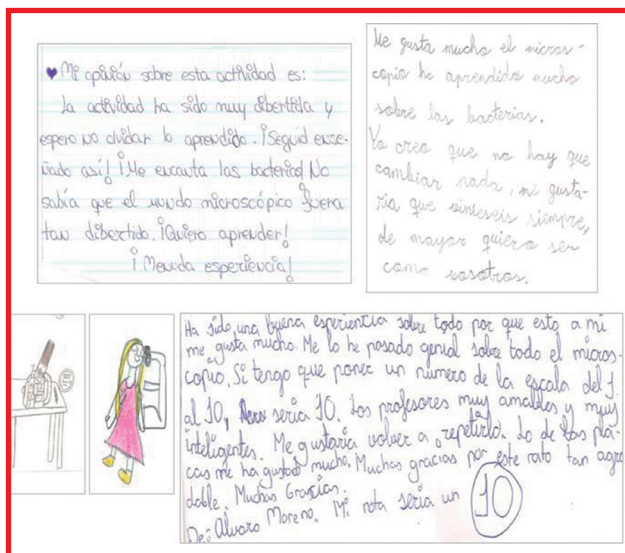 ♥ Mi opinión sobre esta actividad es:
La actividad ha sido muy dibertida y
espero no olvidar lo aprendido. ¡Seguid ense-
ñado así! ¡Me encanta las bacterias! No
sabía que el mundo microscópico fuera
tan dibertido. ¡Quiero aprender!
¡Menuda esperiencia!
Me gusta mucho el micros-
copio he aprendido mucho
sobre las bacterias.
Yo creo que no hay que
cambiar nada, me gusta-
ria que vinieseis siempre,
de mayor quiero ser
como vosotros.
Ha sido una buena esperiencia sobre todo por que esto a mi
me gusta mucho. Me lo he pasado genial sobre todo el micros-
copio. Si tengo que poner un número de la escala del 1
al 10, seria 10. Los profesores muy amables y muy
inteligentes. Me gustaría volver a repetirlo. Lo de las pla-
cas me ha gustado mucho. Muchas gracias por este rato tan agra
dable. Muchas Gracias.
De: Alvaro Moreno. Mi nota seria un 10